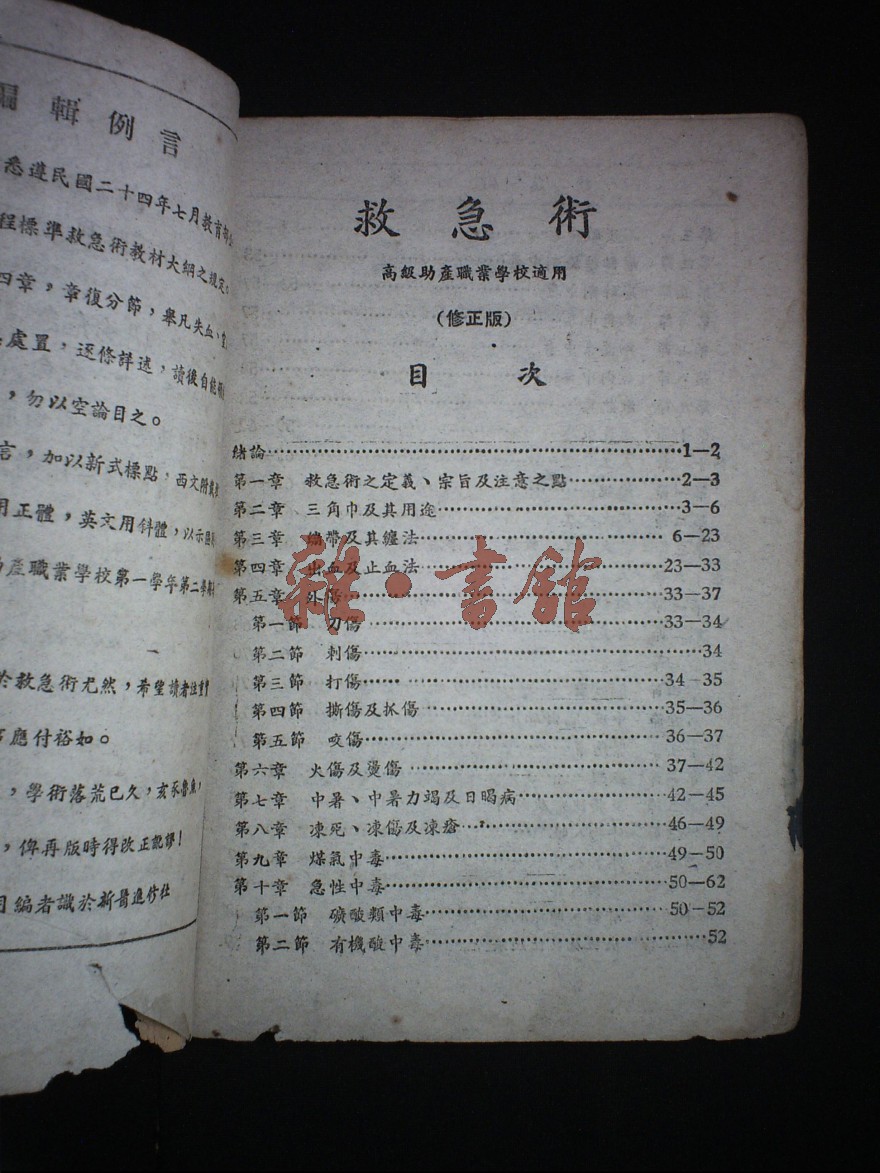 編輯例言
悉遵民國二十四年七月教育部
程標準救急術教材大綱之規定。
四章，章復分節，舉凡失血、
處置，逐條詳述，讀後自能
，勿以空論目之。
言，加以新式標點，西文附
用正體，英文用斜體，以示
產職業學校第一學年第二學
於救急術尤然，希望讀者注
應付裕如。
，學術落荒已久，亥豕魯魚，
，俾再版時得改正訛謬！
編者識於新醫進修社
救急術
高級助產職業學校適用
(修正版)
目 次
緒論 1—2
第一章 救急術之定義、宗旨及注意之點 2—3
第二章 三角巾及其用途 3—6
第三章 繃帶及其纏法 6—23
第四章 出血及止血法 23—33
第五章 外傷 33—37
第一節 刀傷 33—34
第二節 刺傷 34
第三節 打傷 34—35
第四節 撕傷及抓傷 35—36
第五節 咬傷 36—37
第六章 火傷及燙傷 37—42
第七章 中暑、中暑力竭及日暍病 42—45
第八章 凍死、凍傷及凍瘡 46—49
第九章 煤氣中毒 49—50
第十章 急性中毒 50—62
第一節 礦酸類中毒 50—52
第二節 有機酸中毒 52
雜·書館